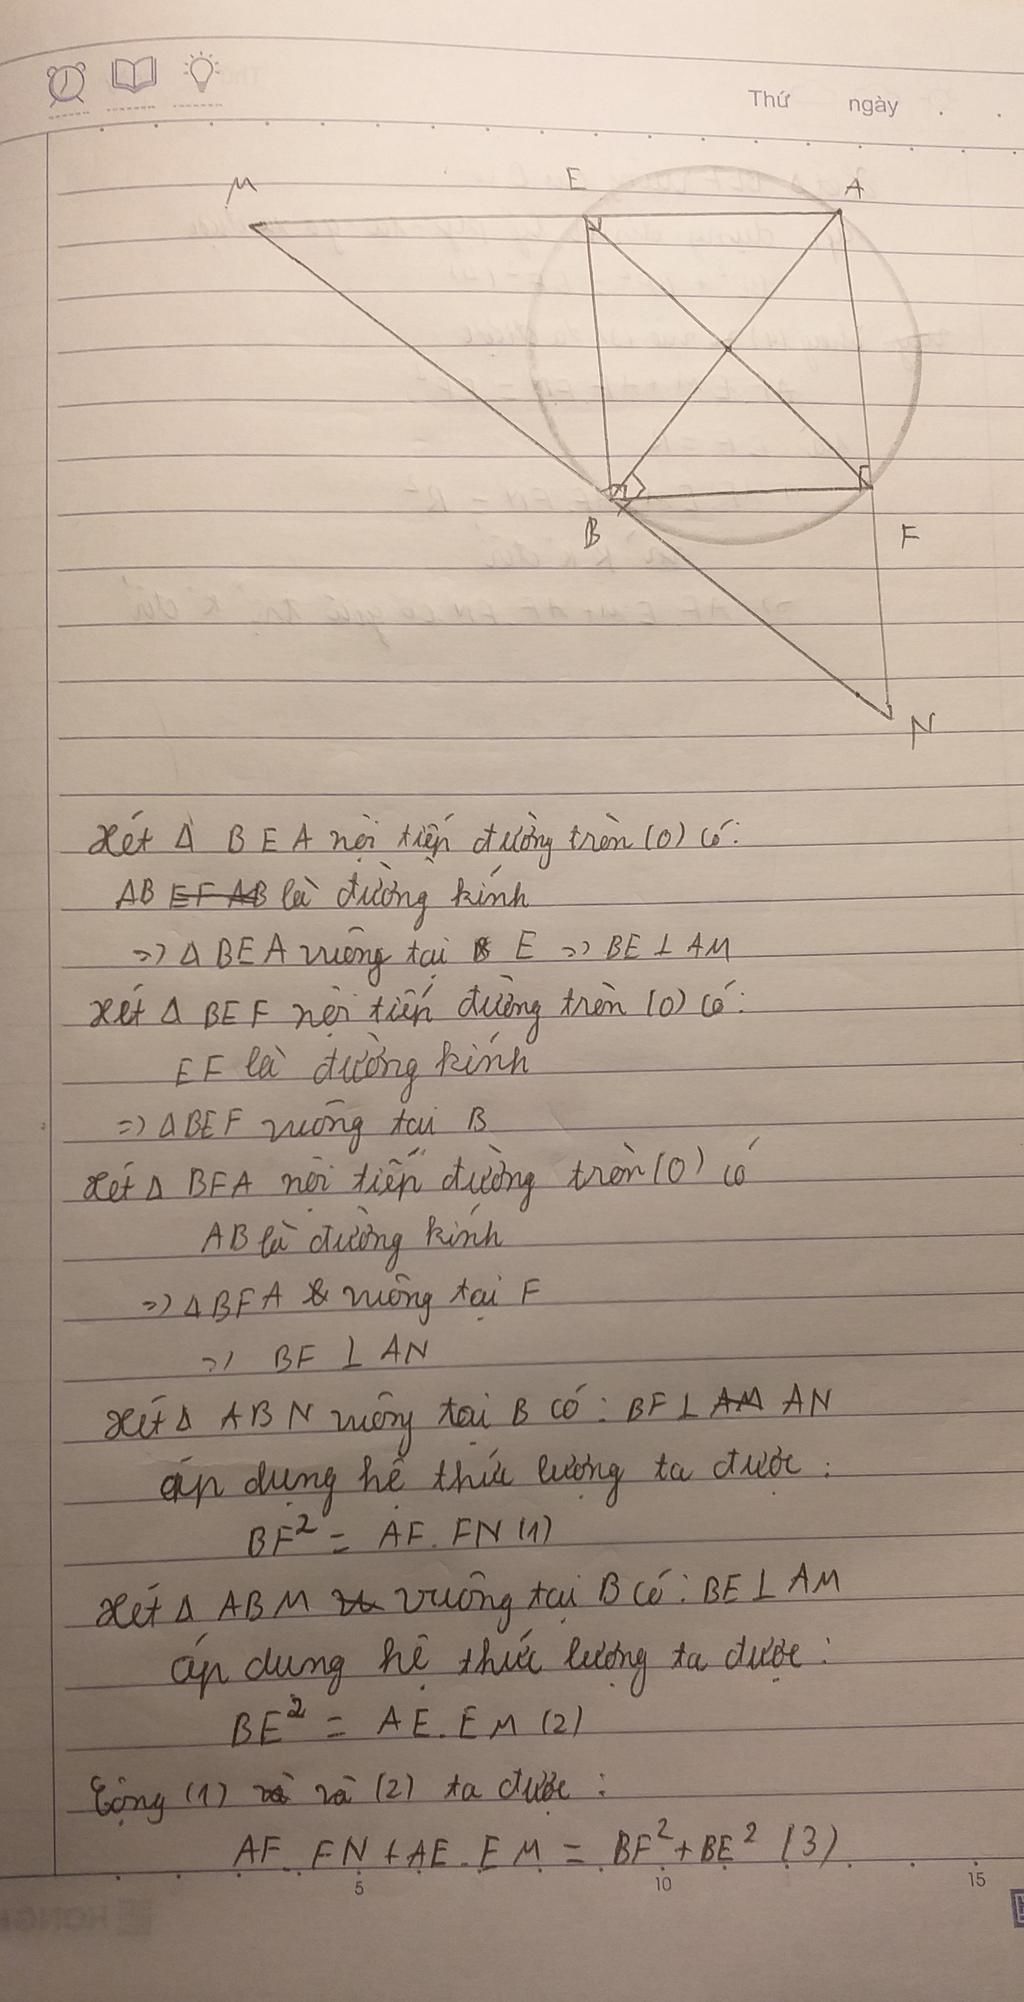 Thứ ngày
M E A
B F
N
Xét Δ BEA nội tiếp đường tròn (O) có:
AB EF AB là đường kính
=> Δ BEA vuông tại E => BE ⊥ AM
Xét Δ BEF nội tiếp đường tròn (O) có:
EF là đường kính
=> Δ BEF vuông tại B
Xét Δ BFA nội tiếp đường tròn (O) có
AB là đường kính
=> Δ BFA vuông tại F
=> BF ⊥ AN
Xét Δ ABN vuông tại B có: BF ⊥ AM AN
áp dụng hệ thức lượng ta được:
BF² = AF.FN (1)
Xét Δ ABM vuông tại B có: BE ⊥ AM
áp dung hệ thức lượng ta được:
BE² = AE.EM (2)
Cộng (1) và và (2) ta được:
AF.FN + AE.EM = BF² + BE² (3)
5 10 15